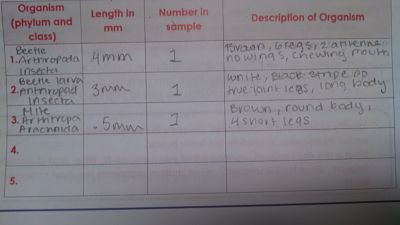 Organism (phylum and class)
Length in mm
Number in sample
Description of Organism
1. Beetle
Arthropoda
Insecta
4mm
1
Brown, 6 legs, 2 antenne
no wings, chewing mouth
2. Beetle larva
Anthropod
Insecta
3mm
1
White, Black stripe no
true joint legs, long body
3. Mite
Arthropa
Arachnida
.5mm
1
Brown, round body,
4 short legs
4.
5.